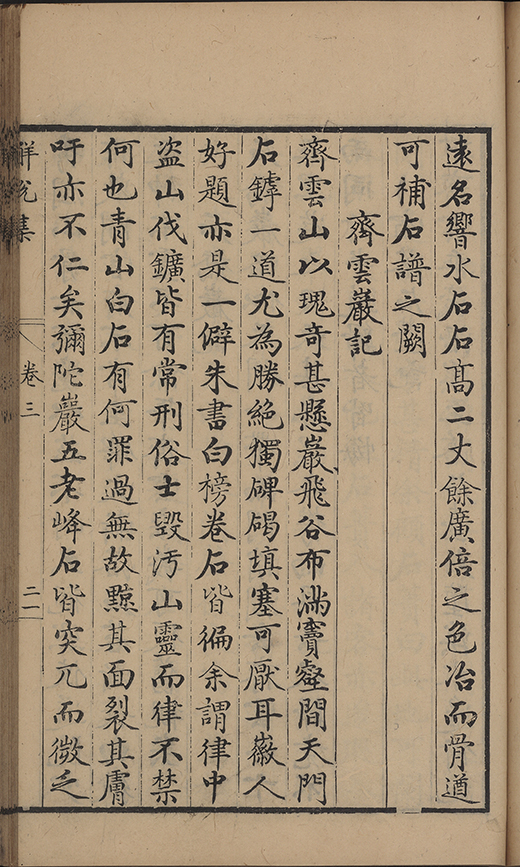 遠名響水石石髙二丈餘廣倍之色冶而骨遒
可補石譜之闕
齊雲巖記
齊雲山以瑰奇甚懸巖飛谷布滿竇壑間天門
石罅一道尤為勝絕獨碑碣填塞可厭耳徽人
好題亦是一僻朱書白榜卷石皆徧余謂律中
盜山伐鑛皆有常刑俗士毀汚山靈而律不禁
何也青山白石有何罪過無故黥其面裂其膚
吁亦不仁矣彌陀巖五老峰石皆突兀而微乏
解脫集
卷三
二一